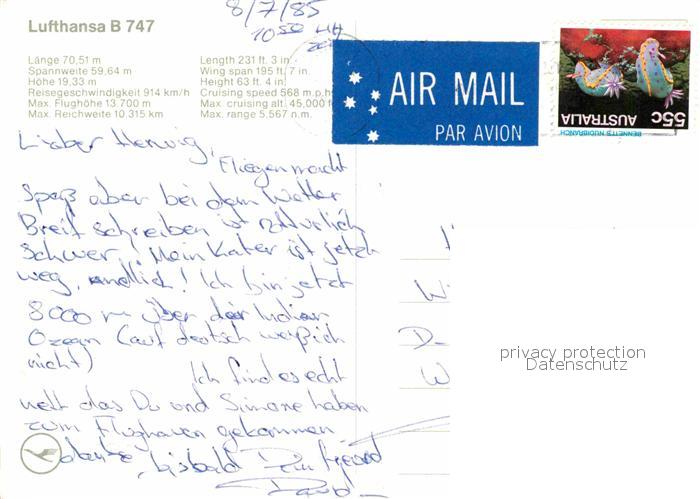 8/7/85
Lufthansa B 747
Länge 70,51 m
Spannweite 59,64 m
Höhe 19,33 m
Reisegeschwindigkeit 914 km/h
Max. Flughöhe 13.700 m
Max. Reichweite 10.315 km
Length 231 ft. 3 in.
Wing span 195 ft. 7 in.
Height 63 ft. 4 in.
Cruising speed 568 m.p.h.
Max. cruising alt. 45,000 f
Max. range 5,567 n.m.
AIR MAIL
PAR AVION
BENNETT'S NUDIBRANCH
AUSTRALIA
55c
Lieber Herwig,
Fliegen macht
Spaß aber bei dem Wetter
Breif schreiben ist natürlich
schwer! Mein Kater ist jetzt
weg, endlich! Ich bin jetzt
8000 m über der Indian
Ozean (auf deutsch weiß ich
nicht)
Ich find es echt
nett das Du und Simone haben
zum Flughaven gekommen
bisbald Dein Freund
W
D
W
privacy protection
Datenschutz